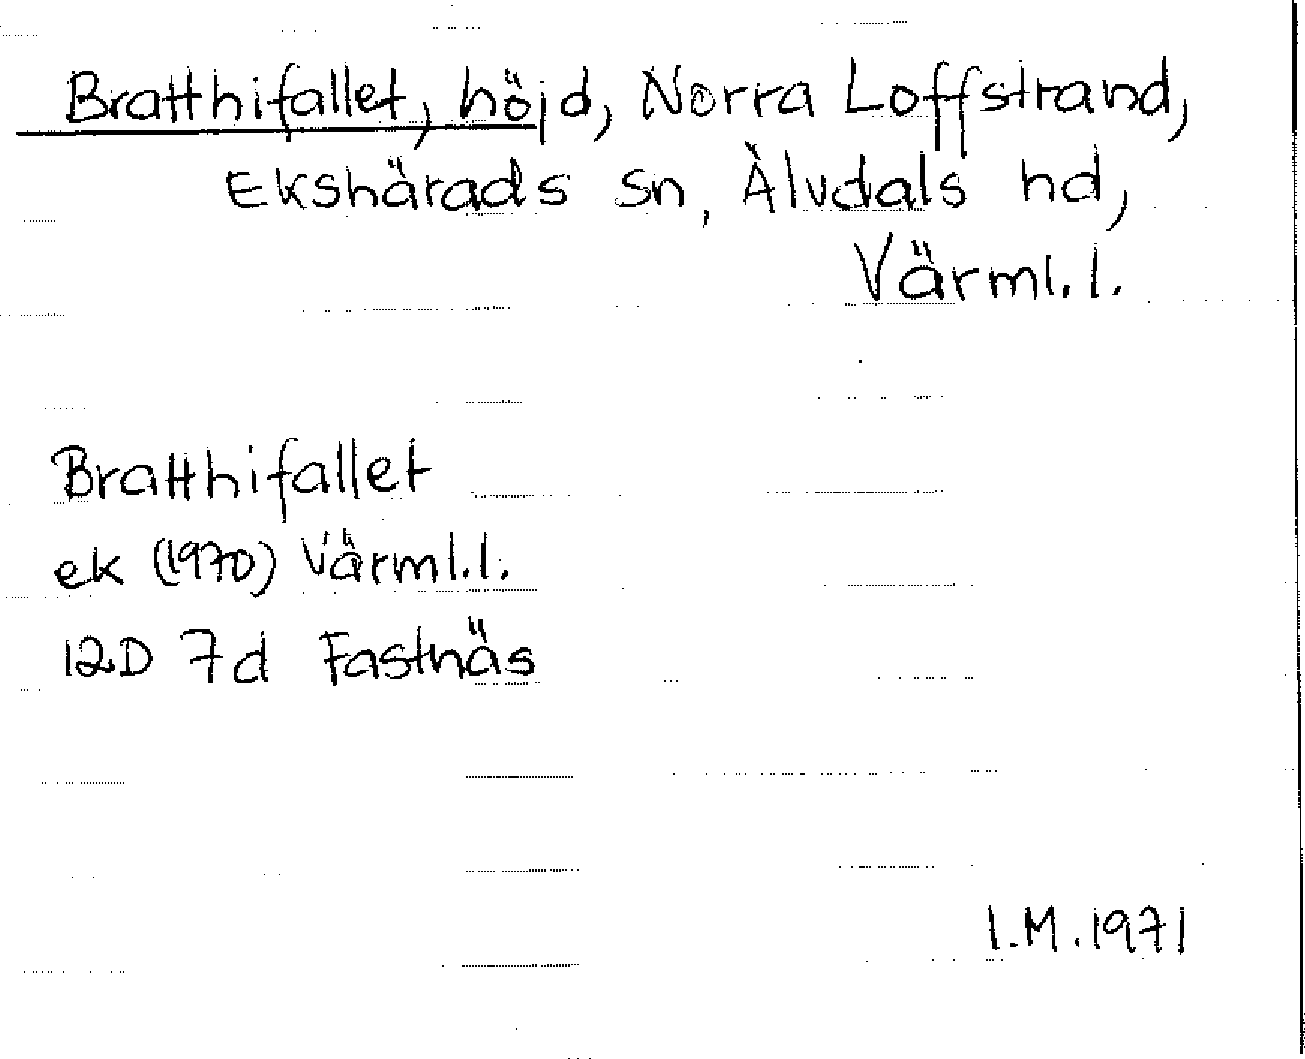 Bratthifallet, höjd, Norra Loffstrand,
Ekshärads sn, Älvdals hd,
Värml. l.
Bratthifallet
ek (1970) Värml. l.
12D 7d Fastnäs
I.M. 1971